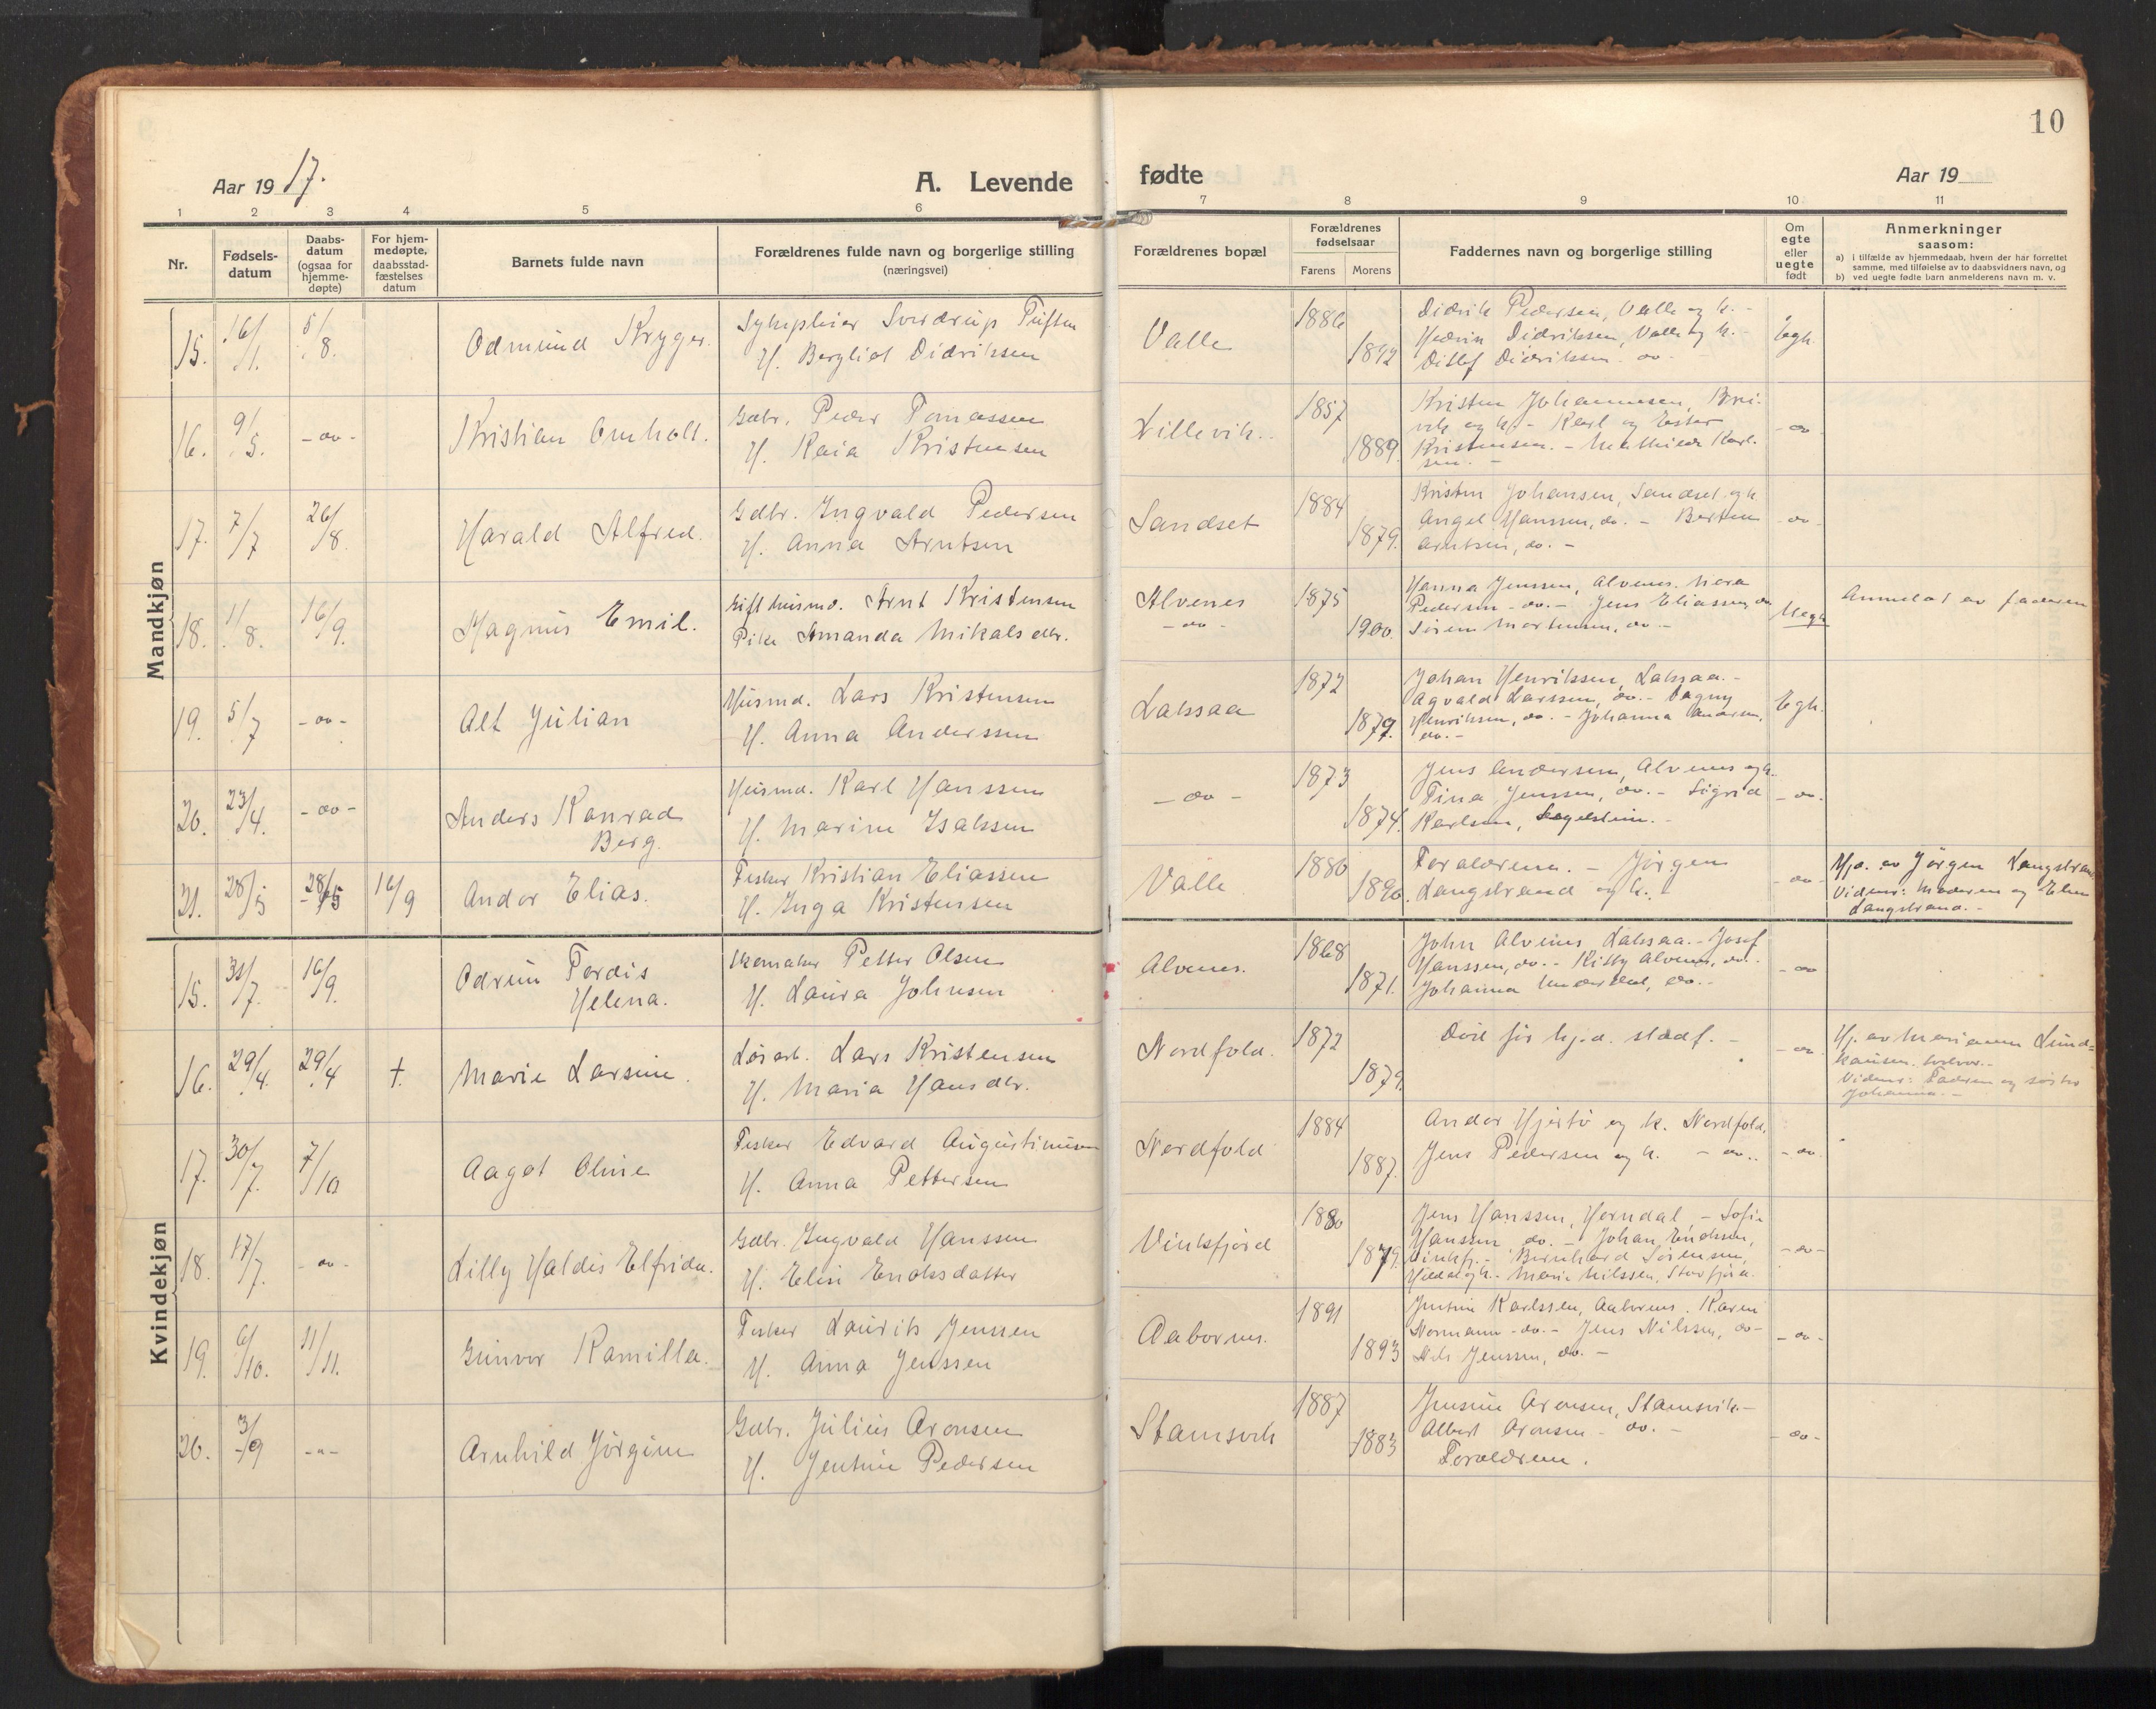 10
Aar 1917.
A. Levende
fødte
Aar 19
1 2 3 4 5 6 7 8 9 10 11
Nr.
Fødsels-
datum
Daabs-
datum
(ogsaa for
hjemme-
døpte)
For hjem-
medøpte,
daabsstad-
fæstelses
datum
Barnets fulde navn
Forældrenes fulde navn og borgerlige stilling
(næringsvei)
Forældrenes bopæl
Forældrenes
fødselsaar
Farens Morens
Faddernes navn og borgerlige stilling
Om
egte
eller
uegte
født
Anmerkninger
saasom:
a) i tilfælde av hjemmedaab, hvem der har forrettet
samme, med tilføielse av to daabsvidners navn, og
b) ved uegte fødte barn anmelderens navn m. v.
Mandkjøn
15. 16/1. 5/8. Odmund Kryger.
Sverdrup Tuften
H. Bergliot Didriksen
Valle
1886
1892
Didrik Pedersen, Valle og h. -
Hedvin Didriksen, Valle og h. -
Ditlef Didriksen. do -
Egh.
16. 9/5. - do - Kristian Omholt.
Gdbr. Peder Tomassen
H. Kaia Kristensen
Lillevik.
1857
1889.
Kristen Johannesen, Bre-
vik og h. - Karl og Ester
Kristensen. - Mathilde Karl-
sen. -
- do -
17. 7/7 26/8. Harald Alfred.
Gdbr. Ingvald Pedersen
H. Anna Arntsen
Sandset
1884
1879.
Kristen Johansen, Sandset og h
Angel Hanssen, do. - Berten
Arntsen, do. -
- do -
18. 1/8. 16/9. Magnus Emil.
Gift husmd. Arnt Kristensen
Pike Amanda Mikalsdtr.
Alvenes
- do -
1875
1900.
Hanna Jenssen, Alvenes. Nora
Pedersen - do. - Jens Eliassen, do
Sören Mortensen, do. -
Uegh
Anmeldt av faderen
19. 5/7 - do - Alf Julian
Husmd. Lars Kristensen
H. Anna Anderssen
Laksaa
1872
1879.
Johan Henriksen, Laksaa. -
Agvald Larssen, do. - Dagny
Henriksen, do. - Johanna Andersen,
do. -
Egh.
20. 23/4. - do - Anders Konrad
Berg.
Husmd. Karl Hanssen
H. Marine Isaksen
- do -
1873
1874.
Jens Andersen, Alvenes og h.
Tina Jenssen, do. - Sigrid
Karlsen, Segelstein. -
- do.
21. 28/5 28/5 16/9 Andor Elias.
Fisker Kristian Eliassen
H. Inga Kristensen
Valle
1880
1890.
Foraldrene. - Jörgen
Langstrand og h. -
- do -
Hjd. av Jörgen Langstrand
Vidner: Moderen og Elen
Langstrand. -
Kvindekjøn
15. 31/7. 16/9. Odrun Tordis
Helena.
Skomaker Petter Olsen
H. Laura Johnsen
Alvenes.
1868
1871.
John Alvenes, Laksaa. - Josef
Hanssen, do. - Kitty Alvenes, do. -
Johanna do. -
- do
16. 29/4. 29/4 †. Marie Larsine.
Lösarb. Lars Kristensen
H. Maria Hansdtr.
Nordfold.
1872
1879.
Död för hj.d. stadf. -
- do.
Hj. av Marianne Lund-
Vidner: Faderen og söster
Johanna. -
17. 30/7. 7/10 Aagot Oline
Fisker Edvard Augustinusen
H. Anna Pettersen
Nordfold
1884
1887.
Andor Hjertö og h. Nordfold,
Jens Pedersen og h. - do. -
- do.
18. 17/7. - do - Lilly Haldis Elfrida.
Gdbr. Ingvald Hanssen
H. Elise Enoksdatter
Vinkfjord
1880
1879.
Jens Hanssen, Horndal, - Sofie
Hanssen do. - Johan Enoksen,
Vinkfj. - Bernhard Sörensen,
Marie Nilssen, Storfjord.
- do -
19. 6/10. 11/11. Gunvor Kamilla.
Fisker Laurits Jenssen
H. Anna Jenssen
Aabornes.
1891
1893
Jentine Karlssen, Aabornes. Karen
Normann - do. - Jens Nilssen, do -
Nils Jenssen, do. -
- do -
20. 3/9 - " - Arnhild Jörgine
Gdbr. Julius Aronsen
H. Jentine Pedersen
Stamsvik
1887
1883
Jensine Aronsen, Stamsvik -
Albert Aronsen - do. -
Foraldrene.
- do -